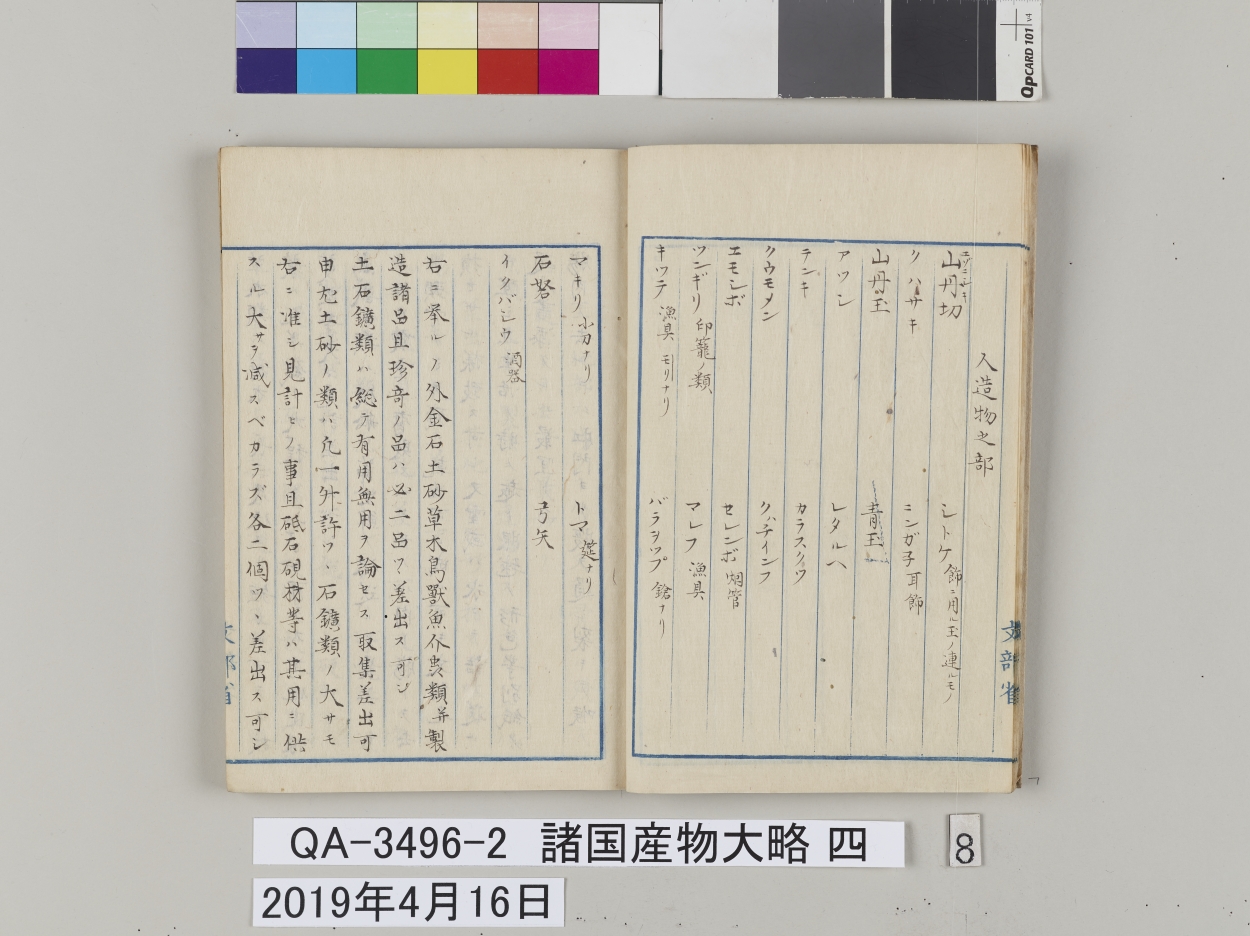 QPCARD 101 v4
人造物之部
山丹切 シトケ 飾ニ用ル玉ノ連ルモノ
クハサキ ニンガ子 耳飾
山丹玉 青玉
アツシ レタルヘ
テンキ カラスクツ
クウモメン クハチインフ
エモシボ セレンボ 烟管
ツンギリ 印籠ノ類 マレフ 漁具
キツテ 漁具 モリナリ バラヲツプ 鎗ナリ
文部省
マキリ 小刀ナリ トマ 莚ナリ
石砮 弓矢
イクバシウ 酒器
右ニ挙ルノ外金石土砂草木鳥獣魚介虫類并製
造諸品且珍奇ノ品ハ必二品ツヽ差出ス可シ
土石鑛類ハ総テ有用無用ヲ論セス取集差出可
申尤土砂ノ類ハ凡一升許ツヽ石鑛類ノ大サモ
右ニ准シ見計ヒノ事且砥石硯材等ハ其用ニ供
スル大サヲ減スベカラズ各二個ツヽ差出ス可シ
文部省
QA-3496-2 諸国産物大略 四
8
2019年4月16日